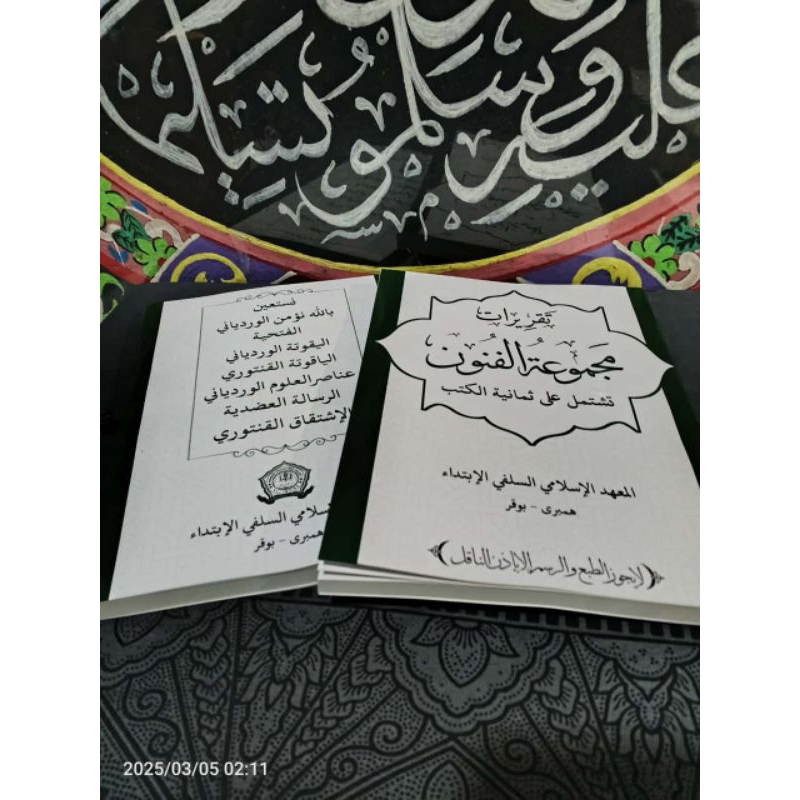 عليه وسلم وتسليم
نستعين
بالله نؤمن الوردياني
الفتحية
اليقوتة الوردياني
الياقوتة القنتوري
عناصر العلوم الوردياني
الرسالة العضدية
الإشتقاق القنتوري
سلامي السلفي الإبتداء
همبرى - بوقر
تقريرات
مجموعة الفنون
تشتمل على ثمانية الكتب
المعهد الإسلامي السلفي الإبتداء
همبرى - بوقر
لايجوز الطبع والرسم الا باذن الناقل
2025/03/05 02:11